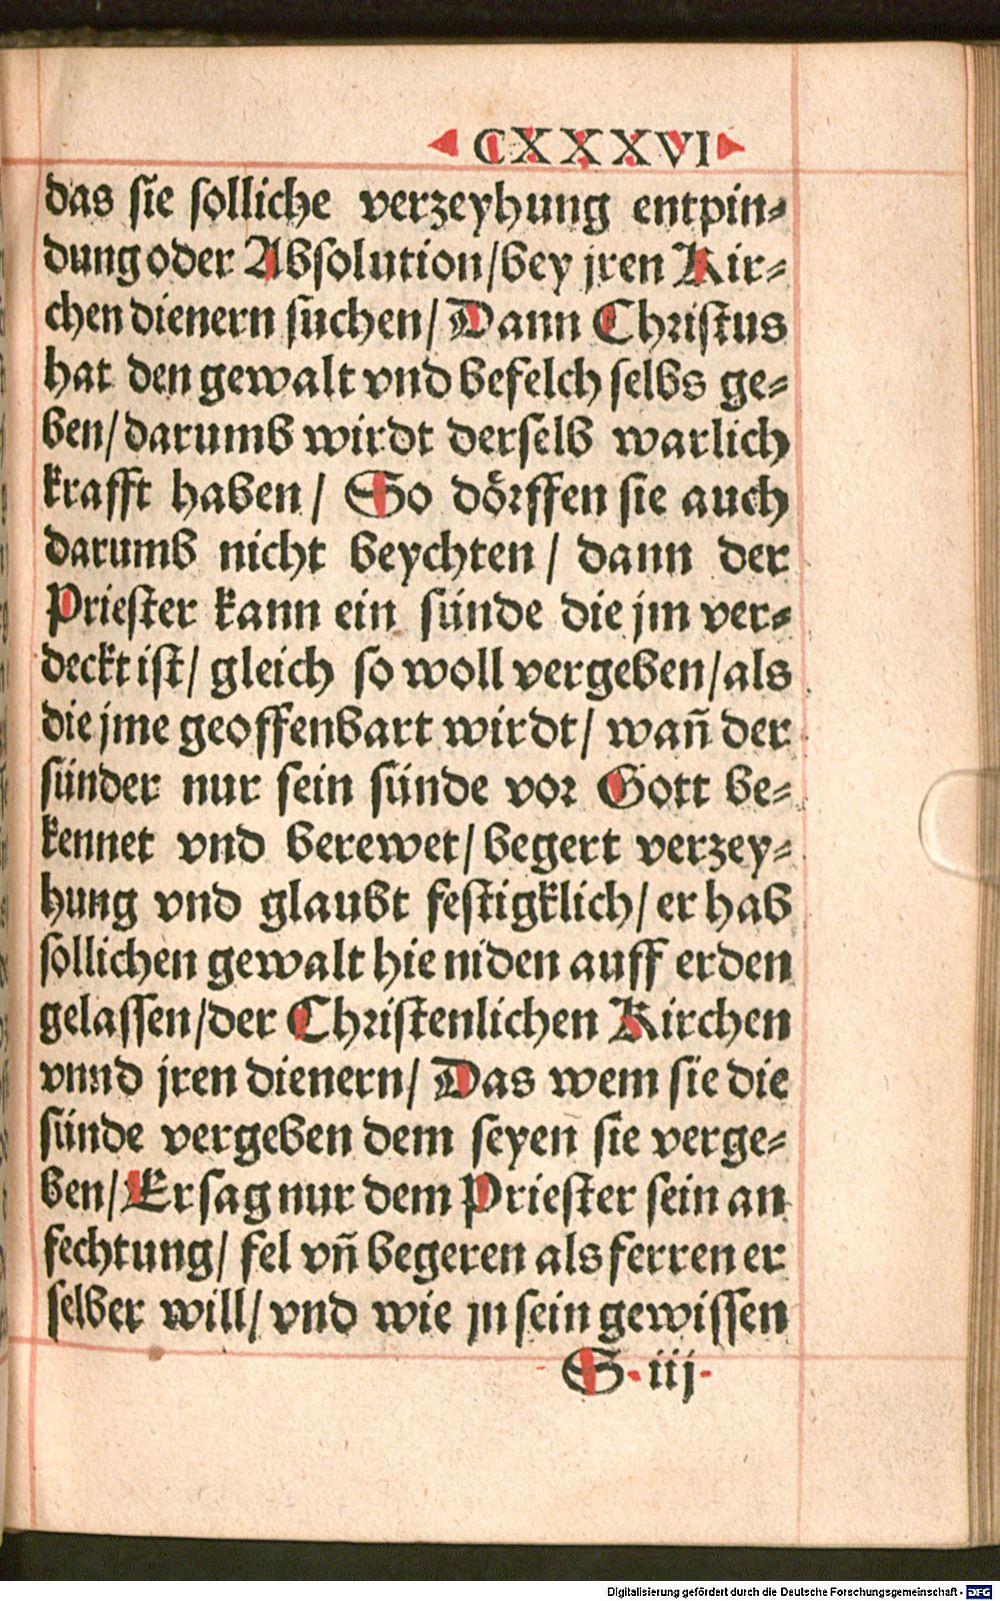 CXXXVI
das sie solliche verzeyhung entpin-
dung oder Absolution/bey jren Kir-
chen dienern suchen/ Dann Christus
hat den gewalt vnd befelch selbs ge-
ben/darumb wirdt derselb warlich
krafft haben/ So dörffen sie auch
darumb nicht beychten/ dann der
Priester kann ein sünde die jm ver-
deckt ist/ gleich so woll vergeben/als
die jme geoffenbart wirdt/ wañ der
sünder nur sein sünde vor Gott be-
kennet vnd berewet/begert verzey-
hung vnd glaubt festigklich/er hab
sollichen gewalt hie niden auff erden
gelassen/der Christenlichen Kirchen
vnnd jren dienern/ Das wem sie die
sünde vergeben dem seyen sie verge-
ben/Er sag nur dem Priester sein an
fechtung/ fel vñ begeren als ferren er
selber will/vnd wie jn sein gewissen
S iij
Digitalisierung gefördert durch die Deutsche Forschungsgemeinschaft - DFG